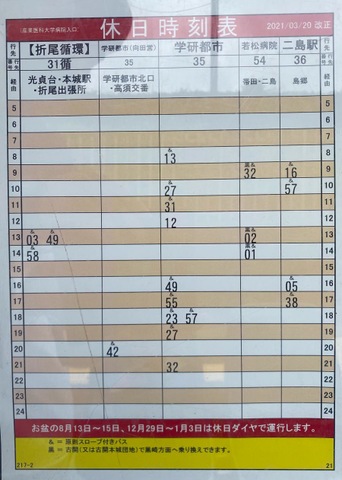 (産業医科大学病院入口) 休日時刻表 2021/03/20 改正
行先 【折尾循環】 学研都市(向田営) 学研都市 若松病院 二島駅 行先
番号 31循 35 35 54 36 番号
経由 光貞台・本城駅・折尾出張所 学研都市北口・高須交番 蜑田・二島 島郷 経由
5 5
6 6
7 7
8 & 13 8
9 黒& 32 & 16 9
10 & 27 & 57 10
11 & 31 11
12 12 12
13 & 03 & 49 黒& 02 13
14 & 58 黒& 01 14
15 15
16 & 49 & 05 16
17 & 55 & 38 17
18 & 23 & 57 18
19 & 27 19
20 & 42 20
21 32 21
22 22
23 23
24 24
お盆の8月13日～15日、12月29日～1月3日は休日ダイヤで運行します。
& = 原則スロープ付きバス
黒 = 古関(又は古関本城団地)で黒崎方面へ乗り換えできます。
217-2 21